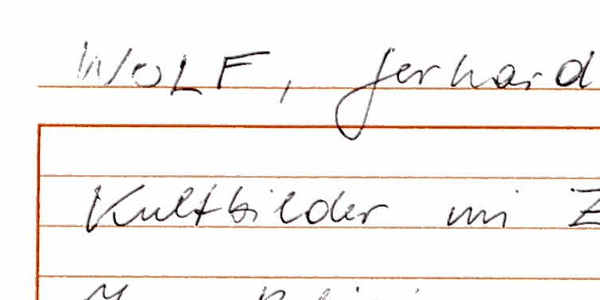 WOLF, Gerhard
Kultbilder im Z